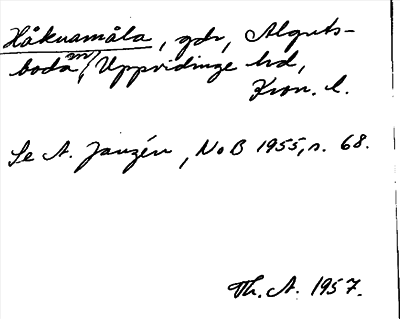 Håknamåla, gdr, Alguts-
boda sn, Uppvidinge hd,
Kron. l.
Se A. Janzén, NoB 1955, s. 68.
Th. A. 1957.